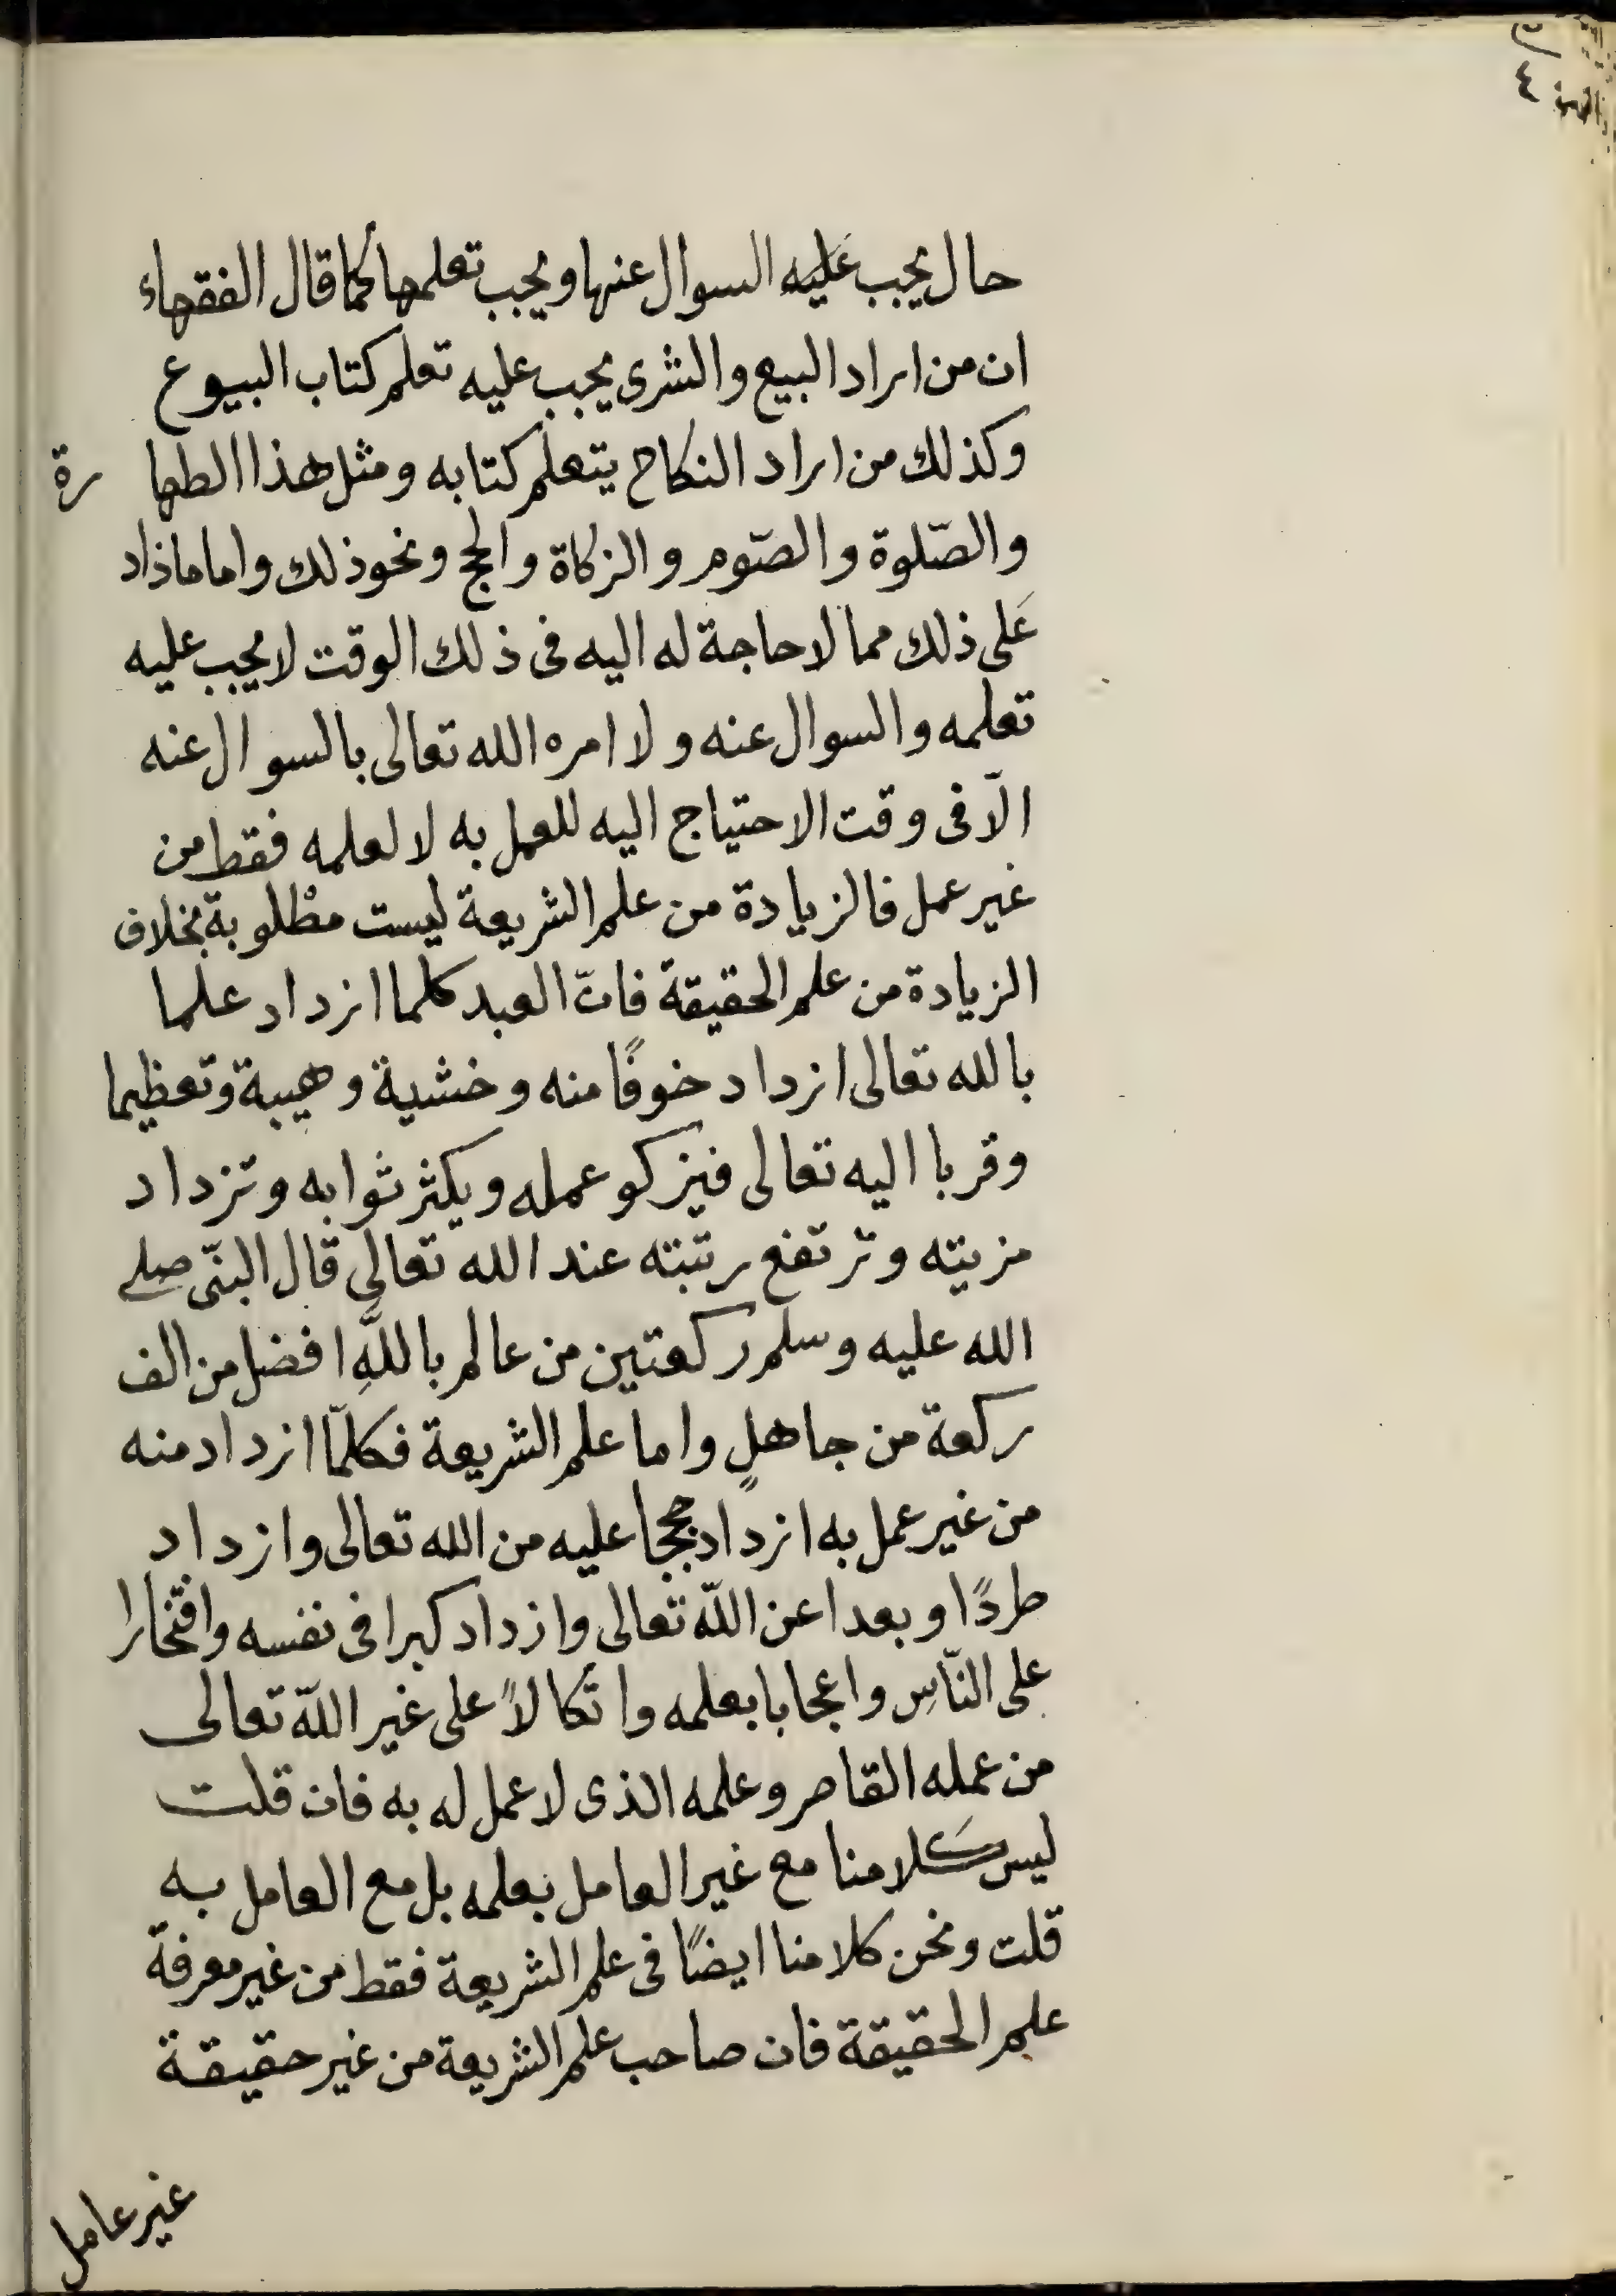 ٤
حال يجب عَليه السوال عنها ويجب تعلمها كما قال الفقهاء
ان من اراد البيع والشرى يجب عليه تعلم كتاب البيوع
وكذلك من اراد النكاح يتعلم كتابه ومثل هذا الطهارة
والصّلوة والصّوم والزكاة والحج ونحو ذلك واما ماذاد
عَلى ذلك مما لا حاجة له اليه فى ذلك الوقت لا يجب عليه
تعلمه والسوال عنه ولا امره الله تعالى بالسوال عنه
الّا فى وقت الاحتياج اليه للعمل به لا لعلمه فقط من
غير عمل فالزيادة من علم الشريعة ليست مطْلوبة بخلاف
الزيادة من علم الحقيقة فانّ العبد كلما ازداد علما
بالله تعالى ازداد خوفًا منه وخشية وهيبة وتعظيما
وقربا اليه تعالى فيزكو عمله ويكثر ثوابه وتزداد
مزيته وترتفع رتبته عند الله تعالى قال النبىّ صلى
الله عليه وسلم ركعتين من عالم باللّهِ افضل من الف
ركعة من جاهلٍ واما علم الشريعة فكلمّا ازداد منه
من غير عمل به ازداد حججا عليه من الله تعالى وازداد
طردًا وبعدا عن اللّه تعالى وازداد كبرا فى نفسه وافتخارا
على النّاسِ واعجابا بعلمه واتكالاً على غير اللّه تعالى
من عمله القاصر وعلمه الذى لا عمل له به فان قلت
ليس كَلامنا مع غير العامل بعلمه بل مع العامل به
قلت ونحن كلامنا ايضًا فى علم الشريعة فقط من غير معرفة
علم الحقيقة فان صاحب علم الشريعة من غير حقيقة
غير عامل